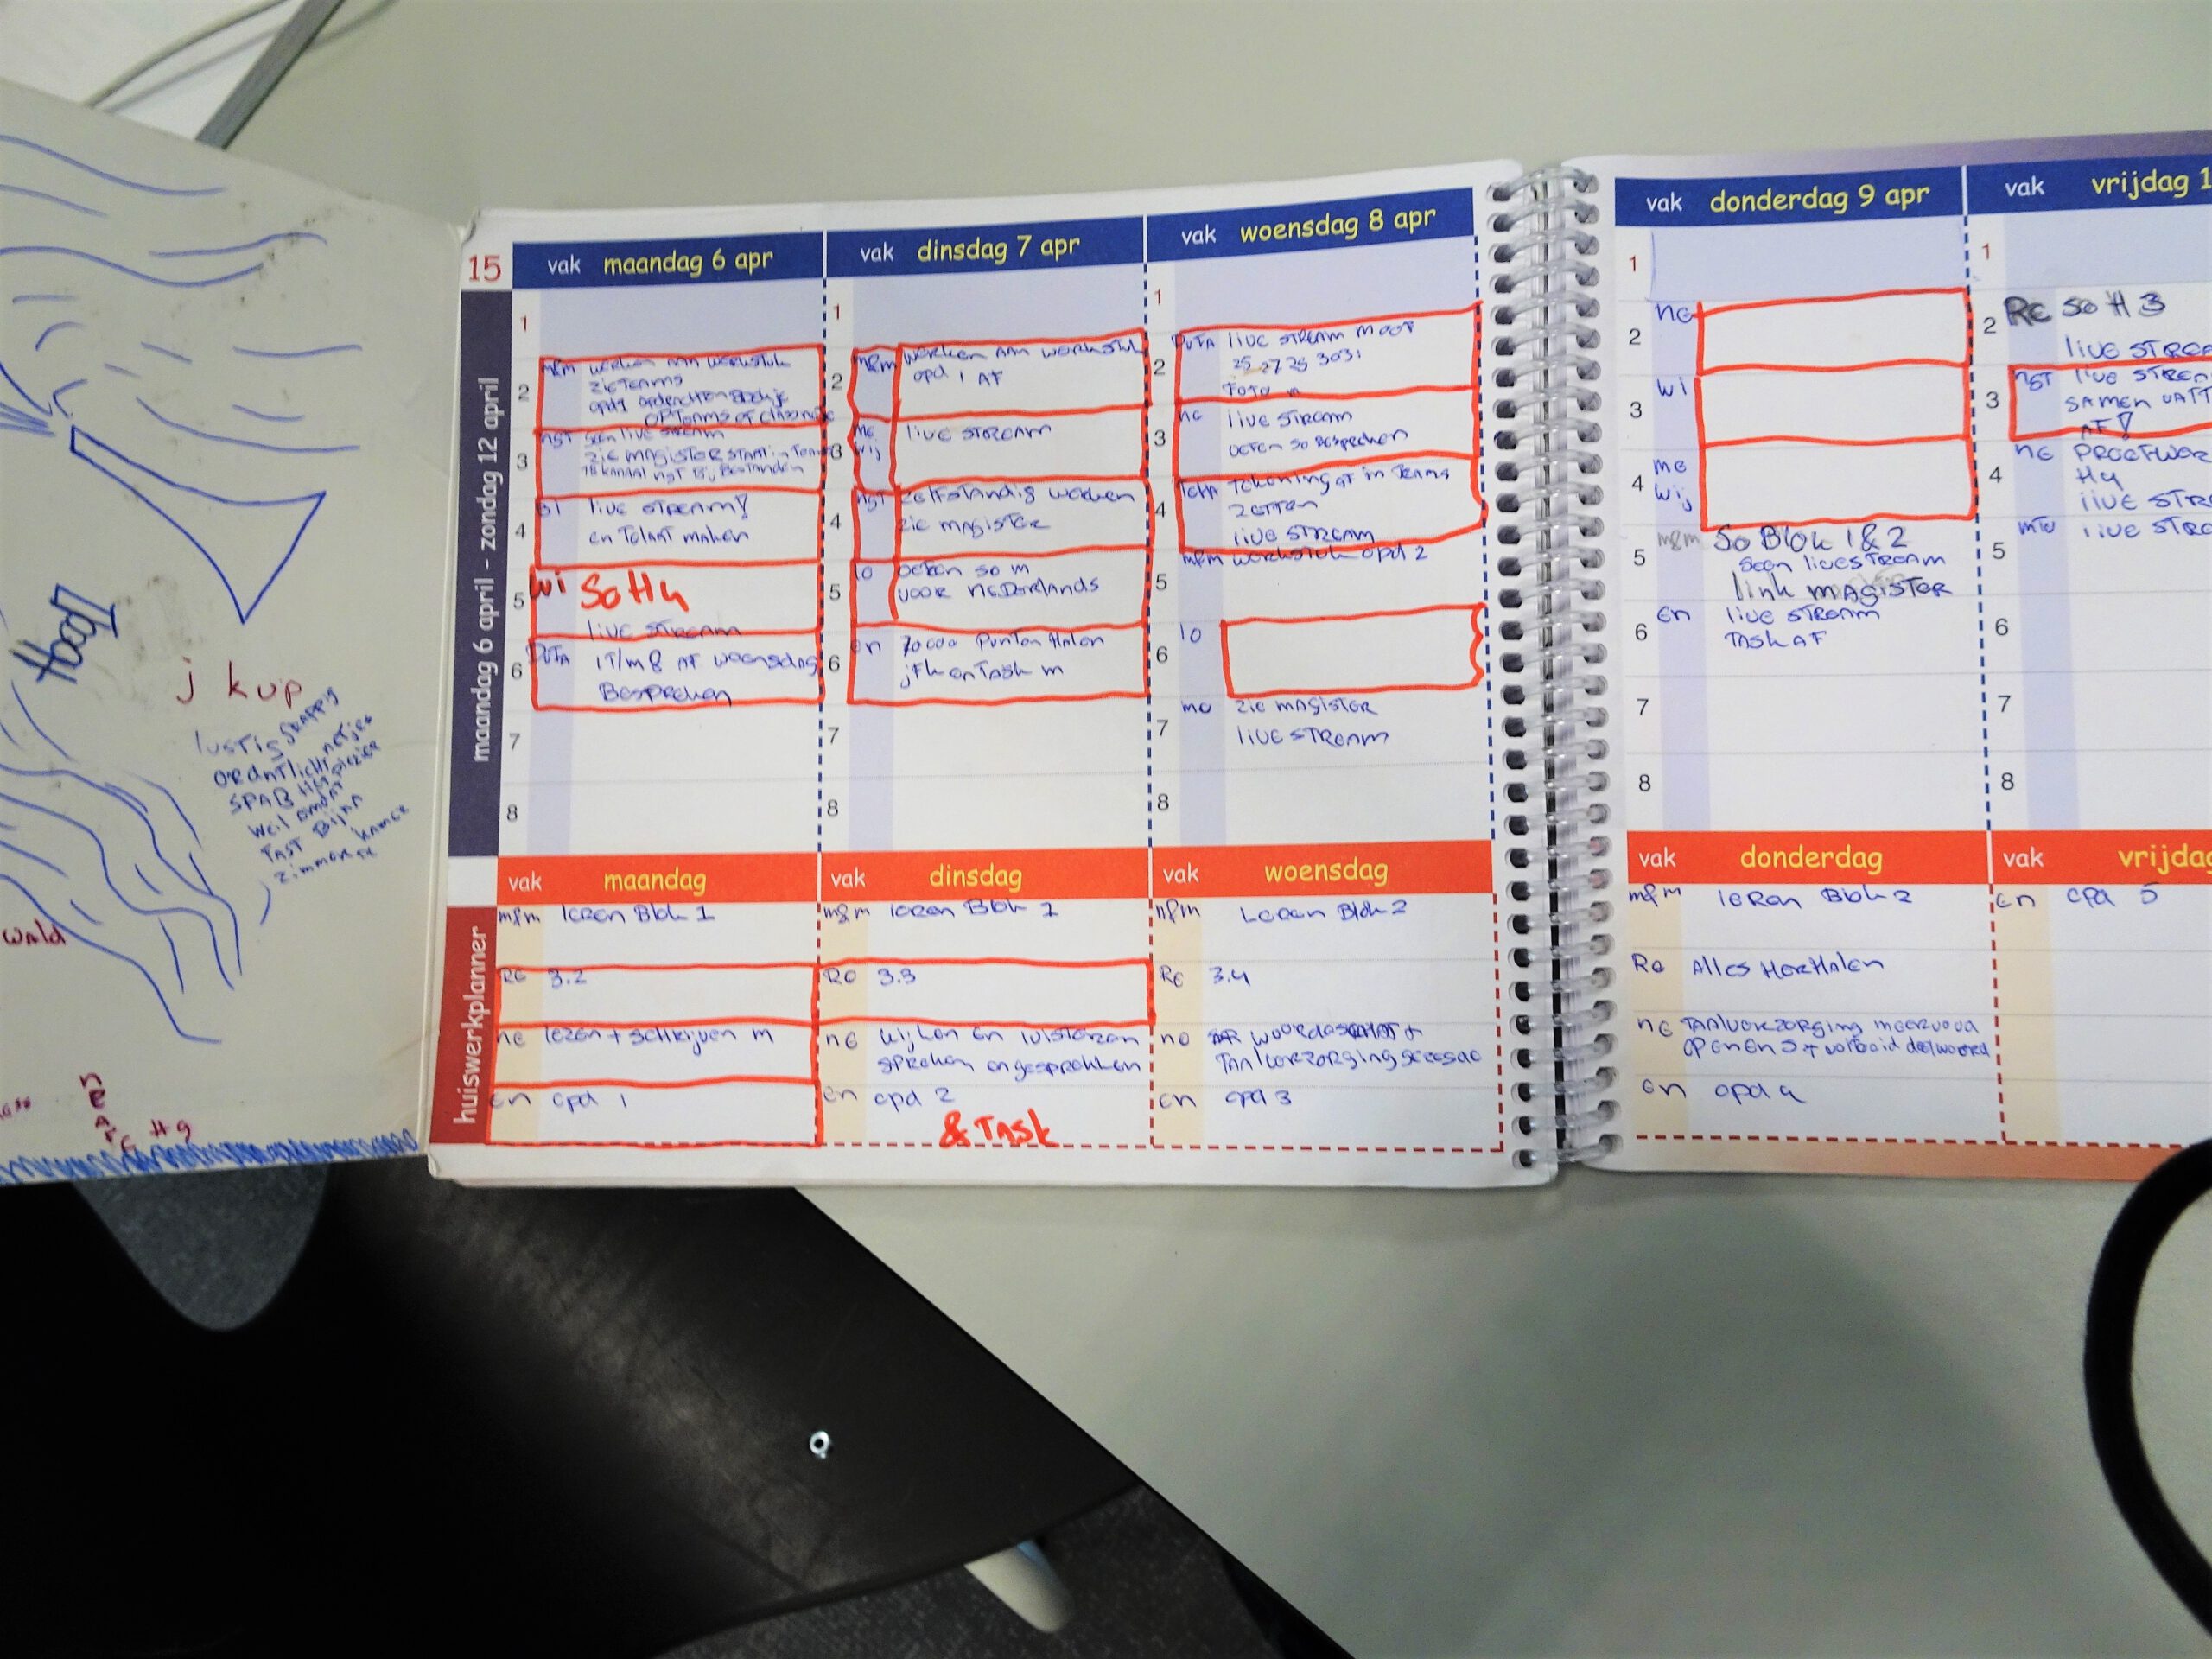 Hoogi
j kup
lustig grappig
ordntlicht netjes
SPAB Het plezier
weil omdat
FAST Bijna
zimmer kamer
wald
Hg
15
maandag 6 april - zondag 12 april
vak maandag 6 apr
1
2 m&m werken aan werkstuk
zie Teams
opd1
OP Teams of
3 ngt geen live stream
zie magister staat in Teams
kanaal ngt Bij Bestanden
4 live stream!
en Telaat maken
5 wi So H4
live stream
6 1T/m 8 AF woensdag
Bespreken
7
8
vak dinsdag 7 apr
1
2 m&m werken aan werkstuk
opd 1 AF
3 me
wij live stream
4 ngt zelfstandig werken
zie magister
5 lo oefen so m
voor nederlands
6 en 70000 Punten Halen
jfk en Task m
7
8
vak woensdag 8 apr
1
2 live stream moot
25 27 29 3031
Foto m
3 ne live stream
oefen so Bespreken
4 Tekening gt in Teams
zetten
live stream
5 m&m werkstuk opd 2
6 lo
7 me zie magister
live stream
8
vak donderdag 9 apr
1
2 ne
3 wi
4 me
wij
5 m&m So Blok 1 & 2
geen livestream
link magister
6 en live stream
Task AF
7
8
vak vrijdag 1
1
2 Re so H 3
live stre
3 ngt live strea
samen vatt
AF!
4 ne Proefwer
H4
live stre
5 live stre
6
7
8
huiswerkplanner
vak maandag
m&m leren Blok 1
Re 3.2
ne lezen + schrijven m
en opd 1
vak dinsdag
m&m leren Blok 1
Re 3.3
ne kijken en luisteren
spreken en gesprekken
en opd 2
& Task
vak woensdag
m&m Leren Blok 2
Re 3.4
ne woordenschat +
Taalverzorging
en opd 3
vak donderdag
m&m leren Blok 2
Re Alles Herhalen
ne Taalverzorging meervoud
op en en s + voltooid deelwoord
en opd 4
vak vrijdag
en opd 5